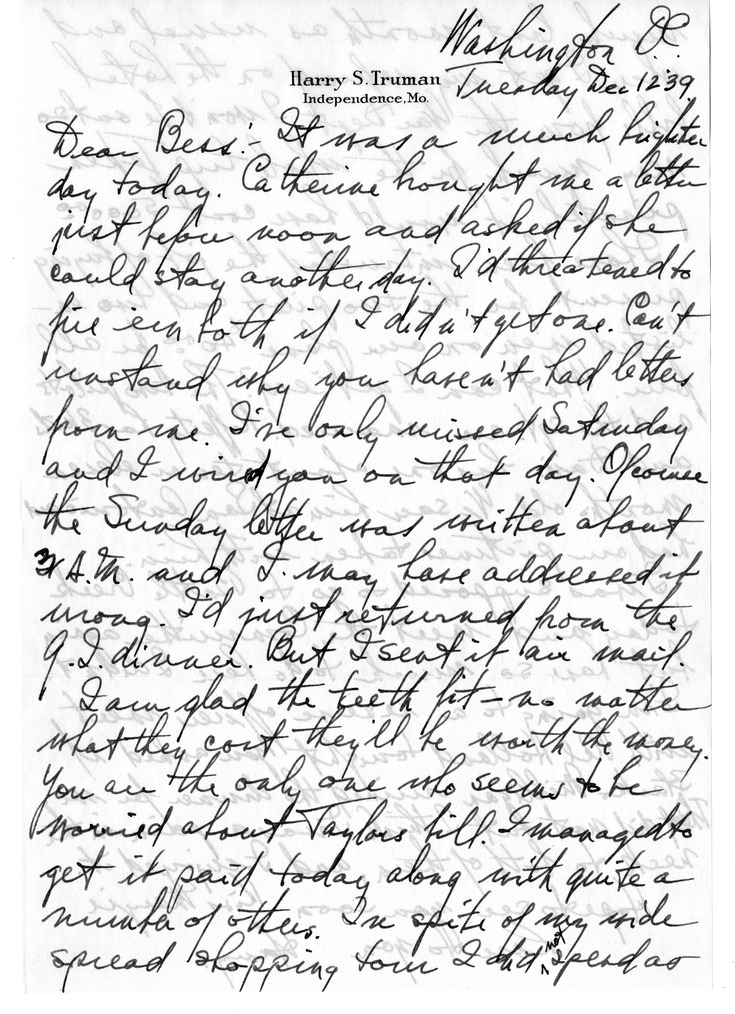 Washington D.C.
Harry S. Truman
Independence, Mo.
Tuesday Dec 12 '39
Dear Bess:- It was a much brighter
day today. Catherine brought me a letter
just before noon and asked if she
could stay another day. I'd threatened to
fire 'em both if I didn't get one. Can't
unstand why you haven't had letters
from me. I've only missed Saturday
and I wired you on that day. Of course
the Sunday letter was written about
3 A.M. and I may have addressed it
wrong. I'd just returned from the
G.I. dinner. But I sent it air mail.
I am glad the teeth fit - no matter
what they cost they'll be worth the money.
You are the only one who seems to be
worried about Taylors bill. I managed to
get it paid today along with quite a
number of others. In spite of my wide
spread shopping tour I did not spend as